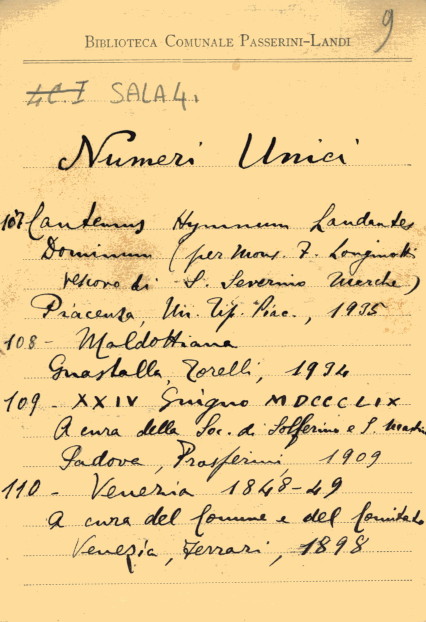 9
BIBLIOTECA COMUNALE PASSERINI-LANDI
4C.I SALA 4.
Numeri Unici
107 Cantemus Hymnum Laudantes
Dominum (per Mons. F. Longinotti
vescovo di S. Severino Marche)
Piacenza, Un. Tip. Piac., 1935
108 - Maldottiana
Guastalla, Torelli, 1934
109 - XXIV Giugno MDCCCLIX
A cura della Soc. di Solferino e S. Martin
Padova, Prosperini, 1909
110 - Venezia 1848-49
A cura del Comune e del Comitato
Venezia, Ferrari, 1898